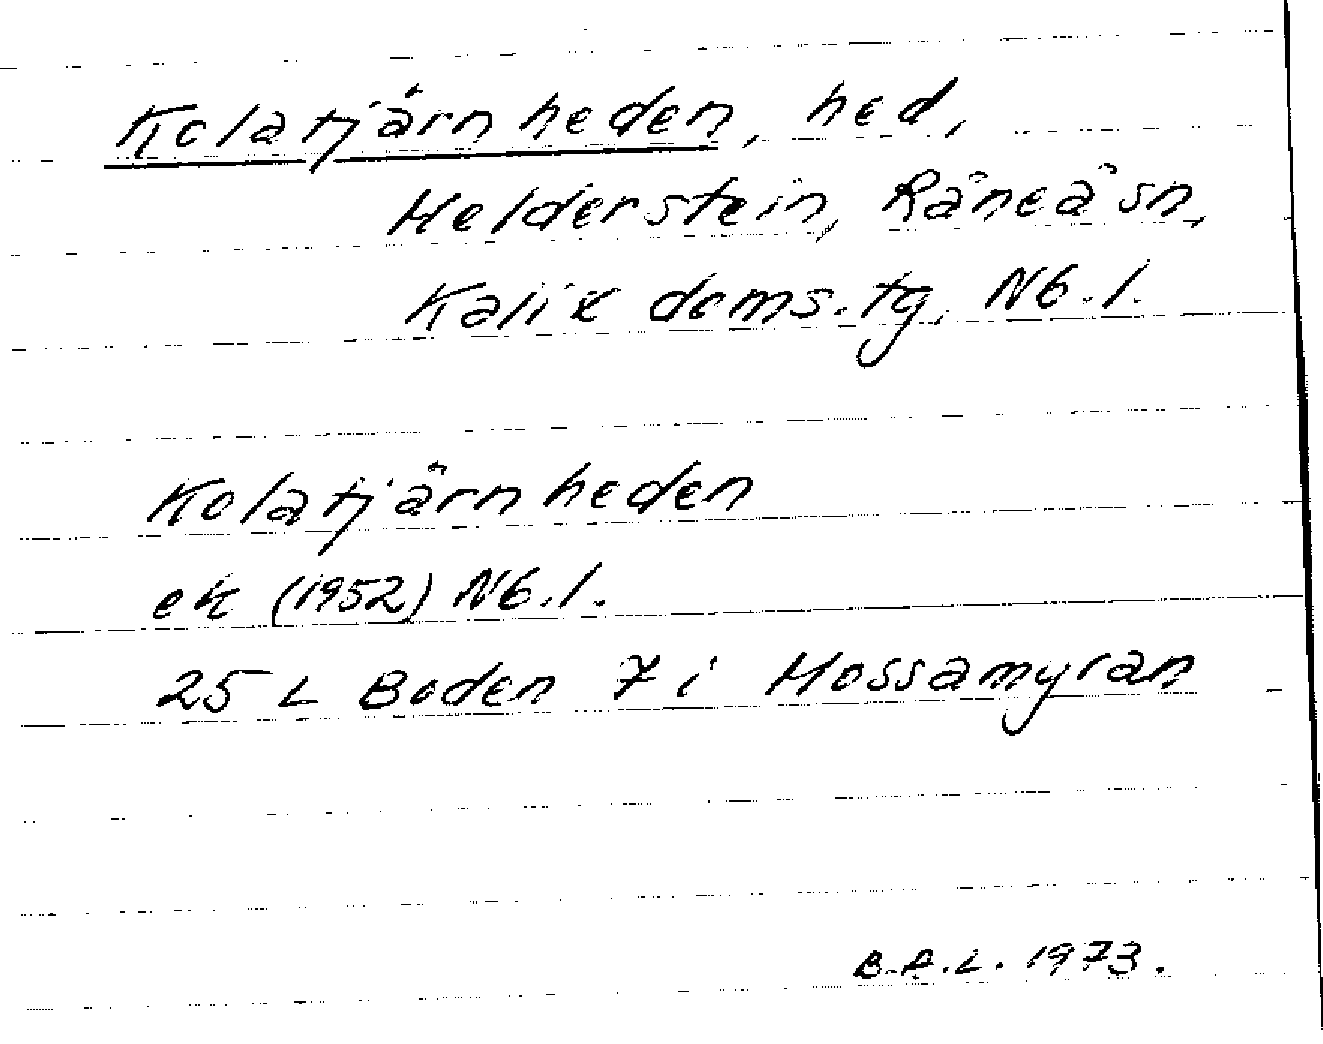 Kolatjärnheden, hed,
Melderstein, Råneå sn,
Kalix doms.tg, Nb.l.
Kolatjärnheden
ek (1952) Nb.l.
25 L Boden 7 i Mossamyran
B.A.L. 1973.